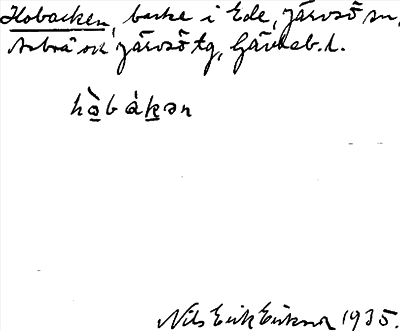 Hobacken, backe i Ede, Järvsö sn,
Arbrå och Järvsö tg, Gävleb. l.
hòbàkən
Nils Erik Eriksson 1935.